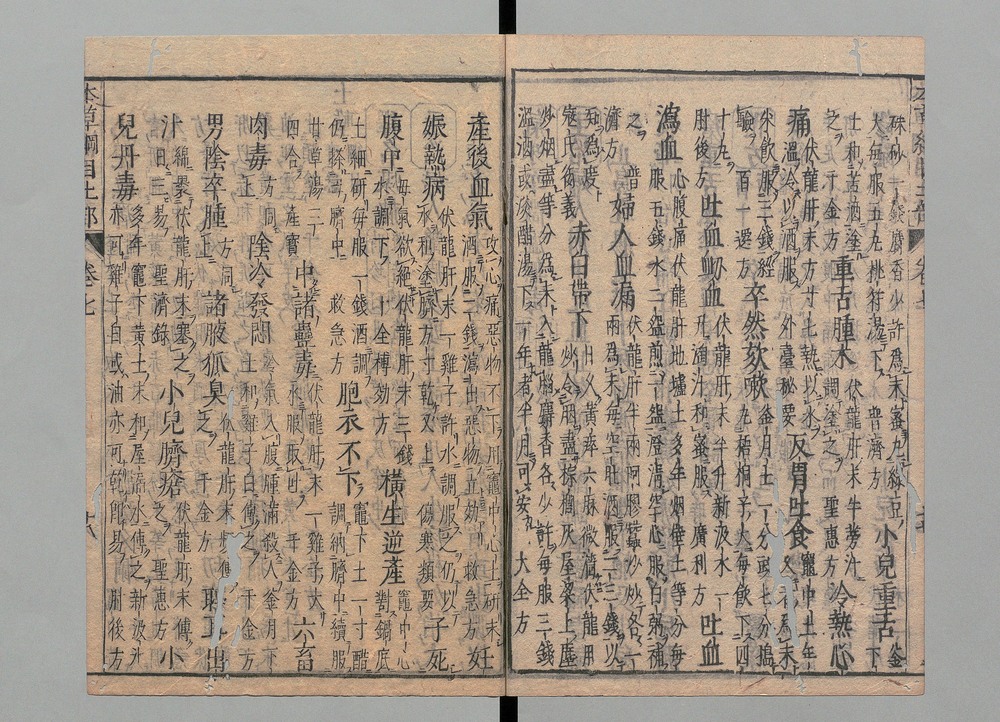 硃砂一錢麝香少許爲末蜜丸綠豆大每服五丸桃符湯下 普濟方 小兒重舌 釜下
土和苦酒塗之 千金方 重舌腫木 伏龍肝末牛蒡汁調塗之 聖惠方 冷熱心
痛 伏龍肝末方寸匕熱以水溫冷以酒服 外臺秘要 反胃吐食 竈中土年久者爲末
米飲服三錢經驗 百一選方 卒然欬嗽 釜月土一分豉七分搗丸梧桐子大每飲下四
十丸 肘後方 吐血衄血 伏龍肝末半升新汲水一升淘汁和蜜服 廣利方 吐血
瀉血 心腹痛伏龍肝地壚土多年烟壁土等分每服五錢水二盌煎一盌澄清空心服白粥補
之 普濟方 婦人血漏 伏龍肝半兩阿膠蠶沙炒各一兩爲末每空肚酒服二三錢以
知爲度 寇氏衍義 赤白帶下 日久黃瘁六脉微濇伏龍肝炒令烟盡棕櫚灰屋梁上塵
炒烟盡等分爲末入龍腦麝香各少許每服三錢溫酒或淡醋湯下一年者半月可安 大全方
產後血氣 攻心痛惡物不下用竈中心土研末酒服二錢瀉出惡物立効 救急方 妊
娠熱病 伏龍肝末一雞子許水調服之仍以水和塗臍方寸乾又上 傷寒類要 子死
腹中 母氣欲絕伏龍肝末三錢水調下 十全博効方 橫生逆產 竈中心對鍋底
土細研每服一錢酒調仍搽母臍中 救急方 胞衣不下 竈下土一寸醋調納臍中續服
甘草湯三四合 產寶 中諸蠱毒 伏龍肝末一雞子大水服取吐 千金方 六畜
肉毒 方同上 陰冷發悶 冷氣入腹腫滿殺人釜月下土和雞子白傅之 千金方
男陰卒腫 方同上 諸腋狐臭 伏龍肝末頻傅之 千金方 聤耳出
汁 綿裹伏龍肝末塞之日三易 聖濟錄 小兒臍瘡 伏龍肝末傅之 聖惠方 小
兒丹毒 多年竈下黃土末和屋漏水傅之新汲水亦可雞子白或油亦可乾即易 肘後方
本草綱目土部 卷七